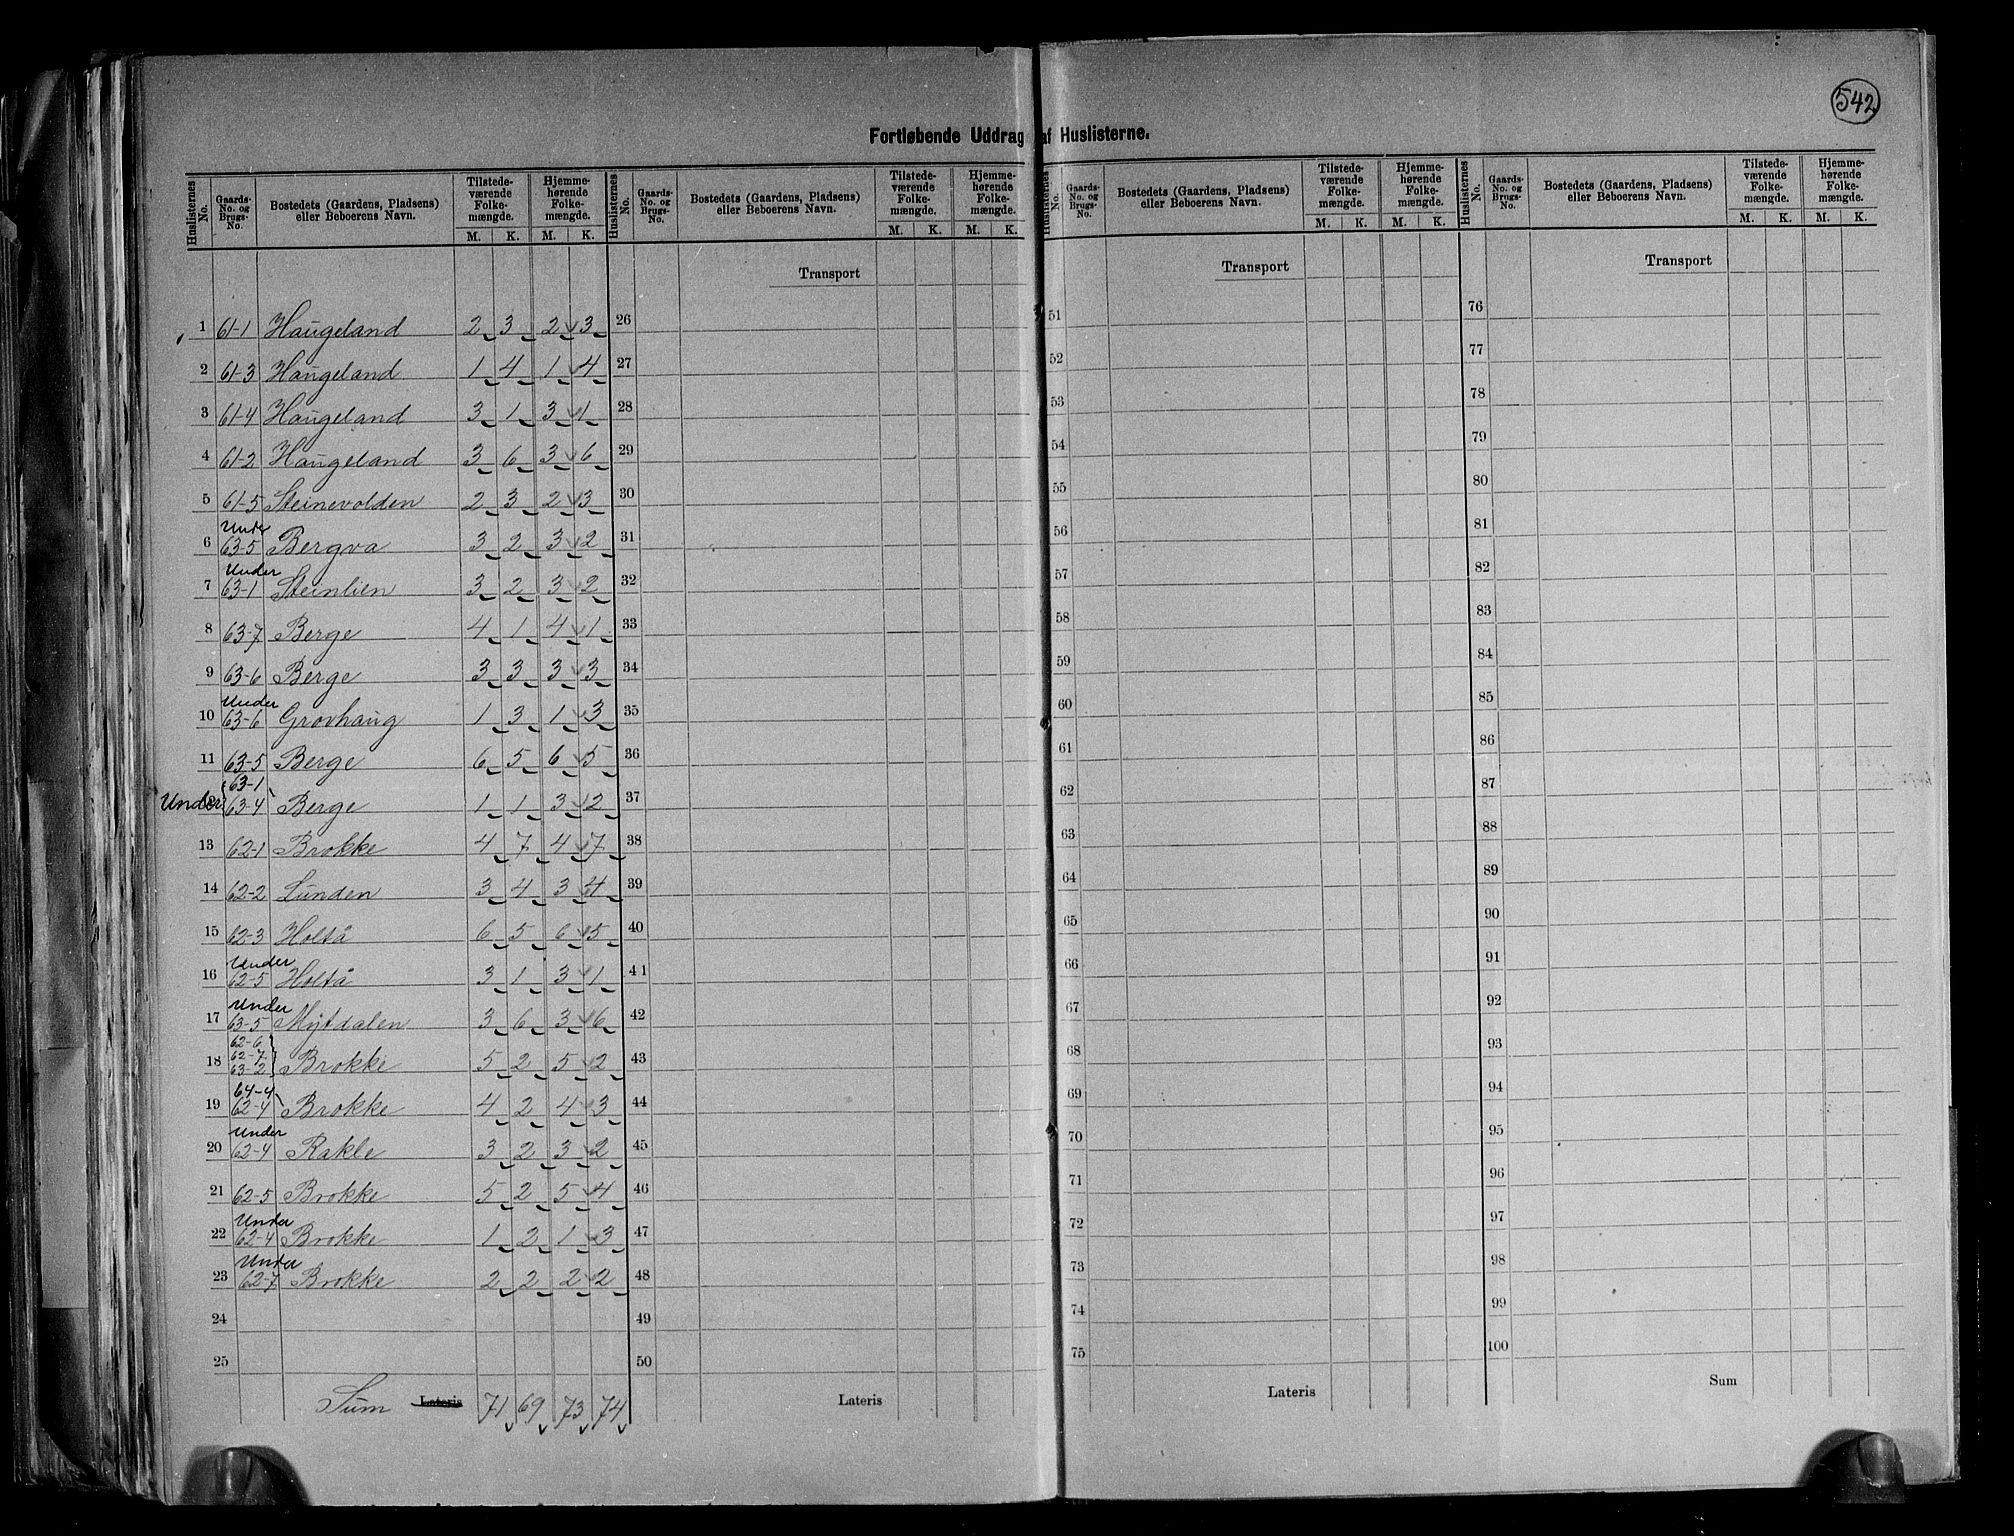 542
Fortløbende Uddrag af Huslisterne.
Huslisternes No. | Gaards-No. og Brugs-No. | Bostedets (Gaardens, Pladsens) eller Beboerens Navn. | Tilstedeværende Folkemængde. M. K. | Hjemmehørende Folkemængde. M. K.
Huslisternes No. | Gaards-No. og Brugs-No. | Bostedets (Gaardens, Pladsens) eller Beboerens Navn. | Tilstedeværende Folkemængde. M. K. | Hjemmehørende Folkemængde. M. K.
Huslisternes No. | Gaards-No. og Brugs-No. | Bostedets (Gaardens, Pladsens) eller Beboerens Navn. | Tilstedeværende Folkemængde. M. K. | Hjemmehørende Folkemængde. M. K.
Huslisternes No. | Gaards-No. og Brugs-No. | Bostedets (Gaardens, Pladsens) eller Beboerens Navn. | Tilstedeværende Folkemængde. M. K. | Hjemmehørende Folkemængde. M. K.
Transport Transport Transport
1 61-1 Haugeland 2 3 2 3 26 51 76
2 61-3 Haugeland 1 4 1 4 27 52 77
3 61-4 Haugeland 3 1 3 1 28 53 78
4 61-2 Haugeland 3 6 3 6 29 54 79
5 61-5 Steinevolden 2 3 2 3 30 55 80
Under
6 63-5 Bergva 3 2 3 2 31 56 81
Under
7 63-1 Steinlien 3 2 3 2 32 57 82
8 63-7 Berge 4 1 4 1 33 58 83
9 63-6 Berge 3 3 3 3 34 59 84
Under
10 63-6 Grovhaug 1 3 1 3 35 60 85
11 63-5 Berge 6 5 6 5 36 61 86
63-1
Under 63-4 Berge 1 1 3 2 37 62 87
13 62-1 Brokke 4 7 4 7 38 63 88
14 62-2 Lunden 3 4 3 4 39 64 89
15 62-3 Holtå 6 5 6 5 40 65 90
Under
16 62-5 Holtå 3 1 3 1 41 66 91
Under
17 63-5 Mytdalen 3 6 3 6 42 67 92
62-6
62-7
18 63-2 Brokke 5 2 5 2 43 68 93
64-4
19 62-4 Brokke 4 2 4 3 44 69 94
Under
20 62-4 Rakle 3 2 3 2 45 70 95
21 62-5 Brokke 5 2 5 4 46 71 96
Under
22 62-4 Brokke 1 2 1 3 47 72 97
Under
23 62-7 Brokke 2 2 2 2 48 73 98
24 49 74 99
25 50 75 100
Sum Lateris 71 69 73 74 Lateris Lateris Sum